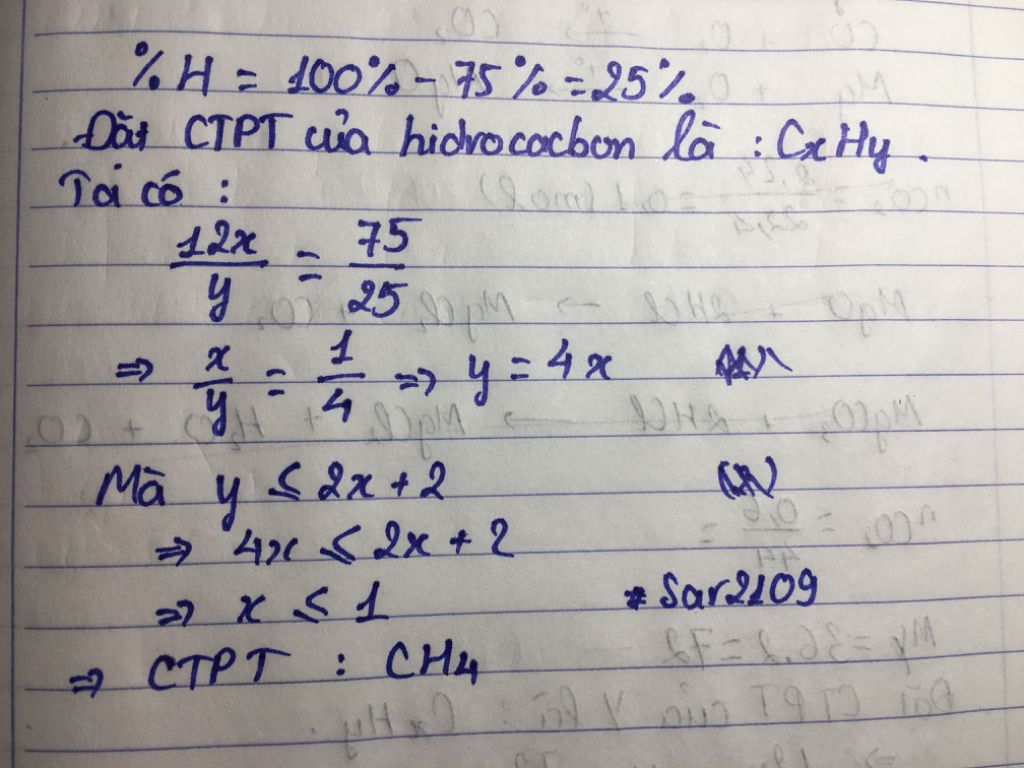 %H = 100% - 75% = 25%.
Đặt CTPT của hidrocacbon là : CxHy .
Ta có :
12x/y = 75/25
=> x/y = 1/4 => y = 4x
Mà y ≤ 2x + 2
=> 4x ≤ 2x + 2
=> x ≤ 1
*Sar2109
=> CTPT : CH4